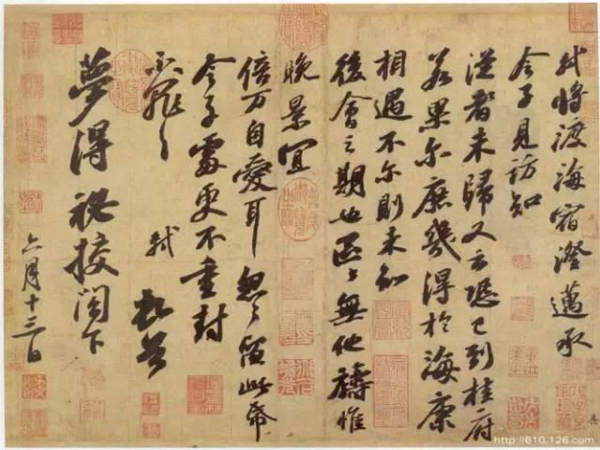 軾將渡海宿澄邁承
令子見訪知
從者未歸又云恐已到桂府
若果尔庶幾得於海康
相遇不尔則未知
後會之期也區〻無他禱惟
晚景宜
倍万自愛耳怱〻留此帋
令子處更不重封
不罪〻
軾 頓首
夢得祕校閣下
六月十三日
http://610.126.com